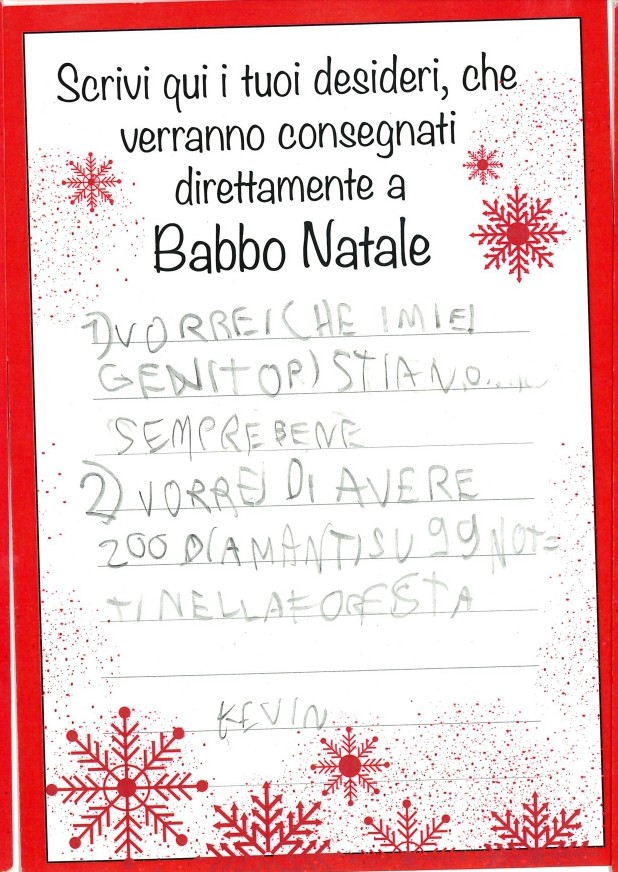 Scrivi qui i tuoi desideri, che
verranno consegnati
direttamente a
Babbo Natale
1) VORREI CHE I MIEI
GENITORI STIANO.....
SEMPRE BENE
2) VORREI DI AVERE
200 DIAMANTI SU 99 NOT=
TI NELLA FORESTA
KEVIN